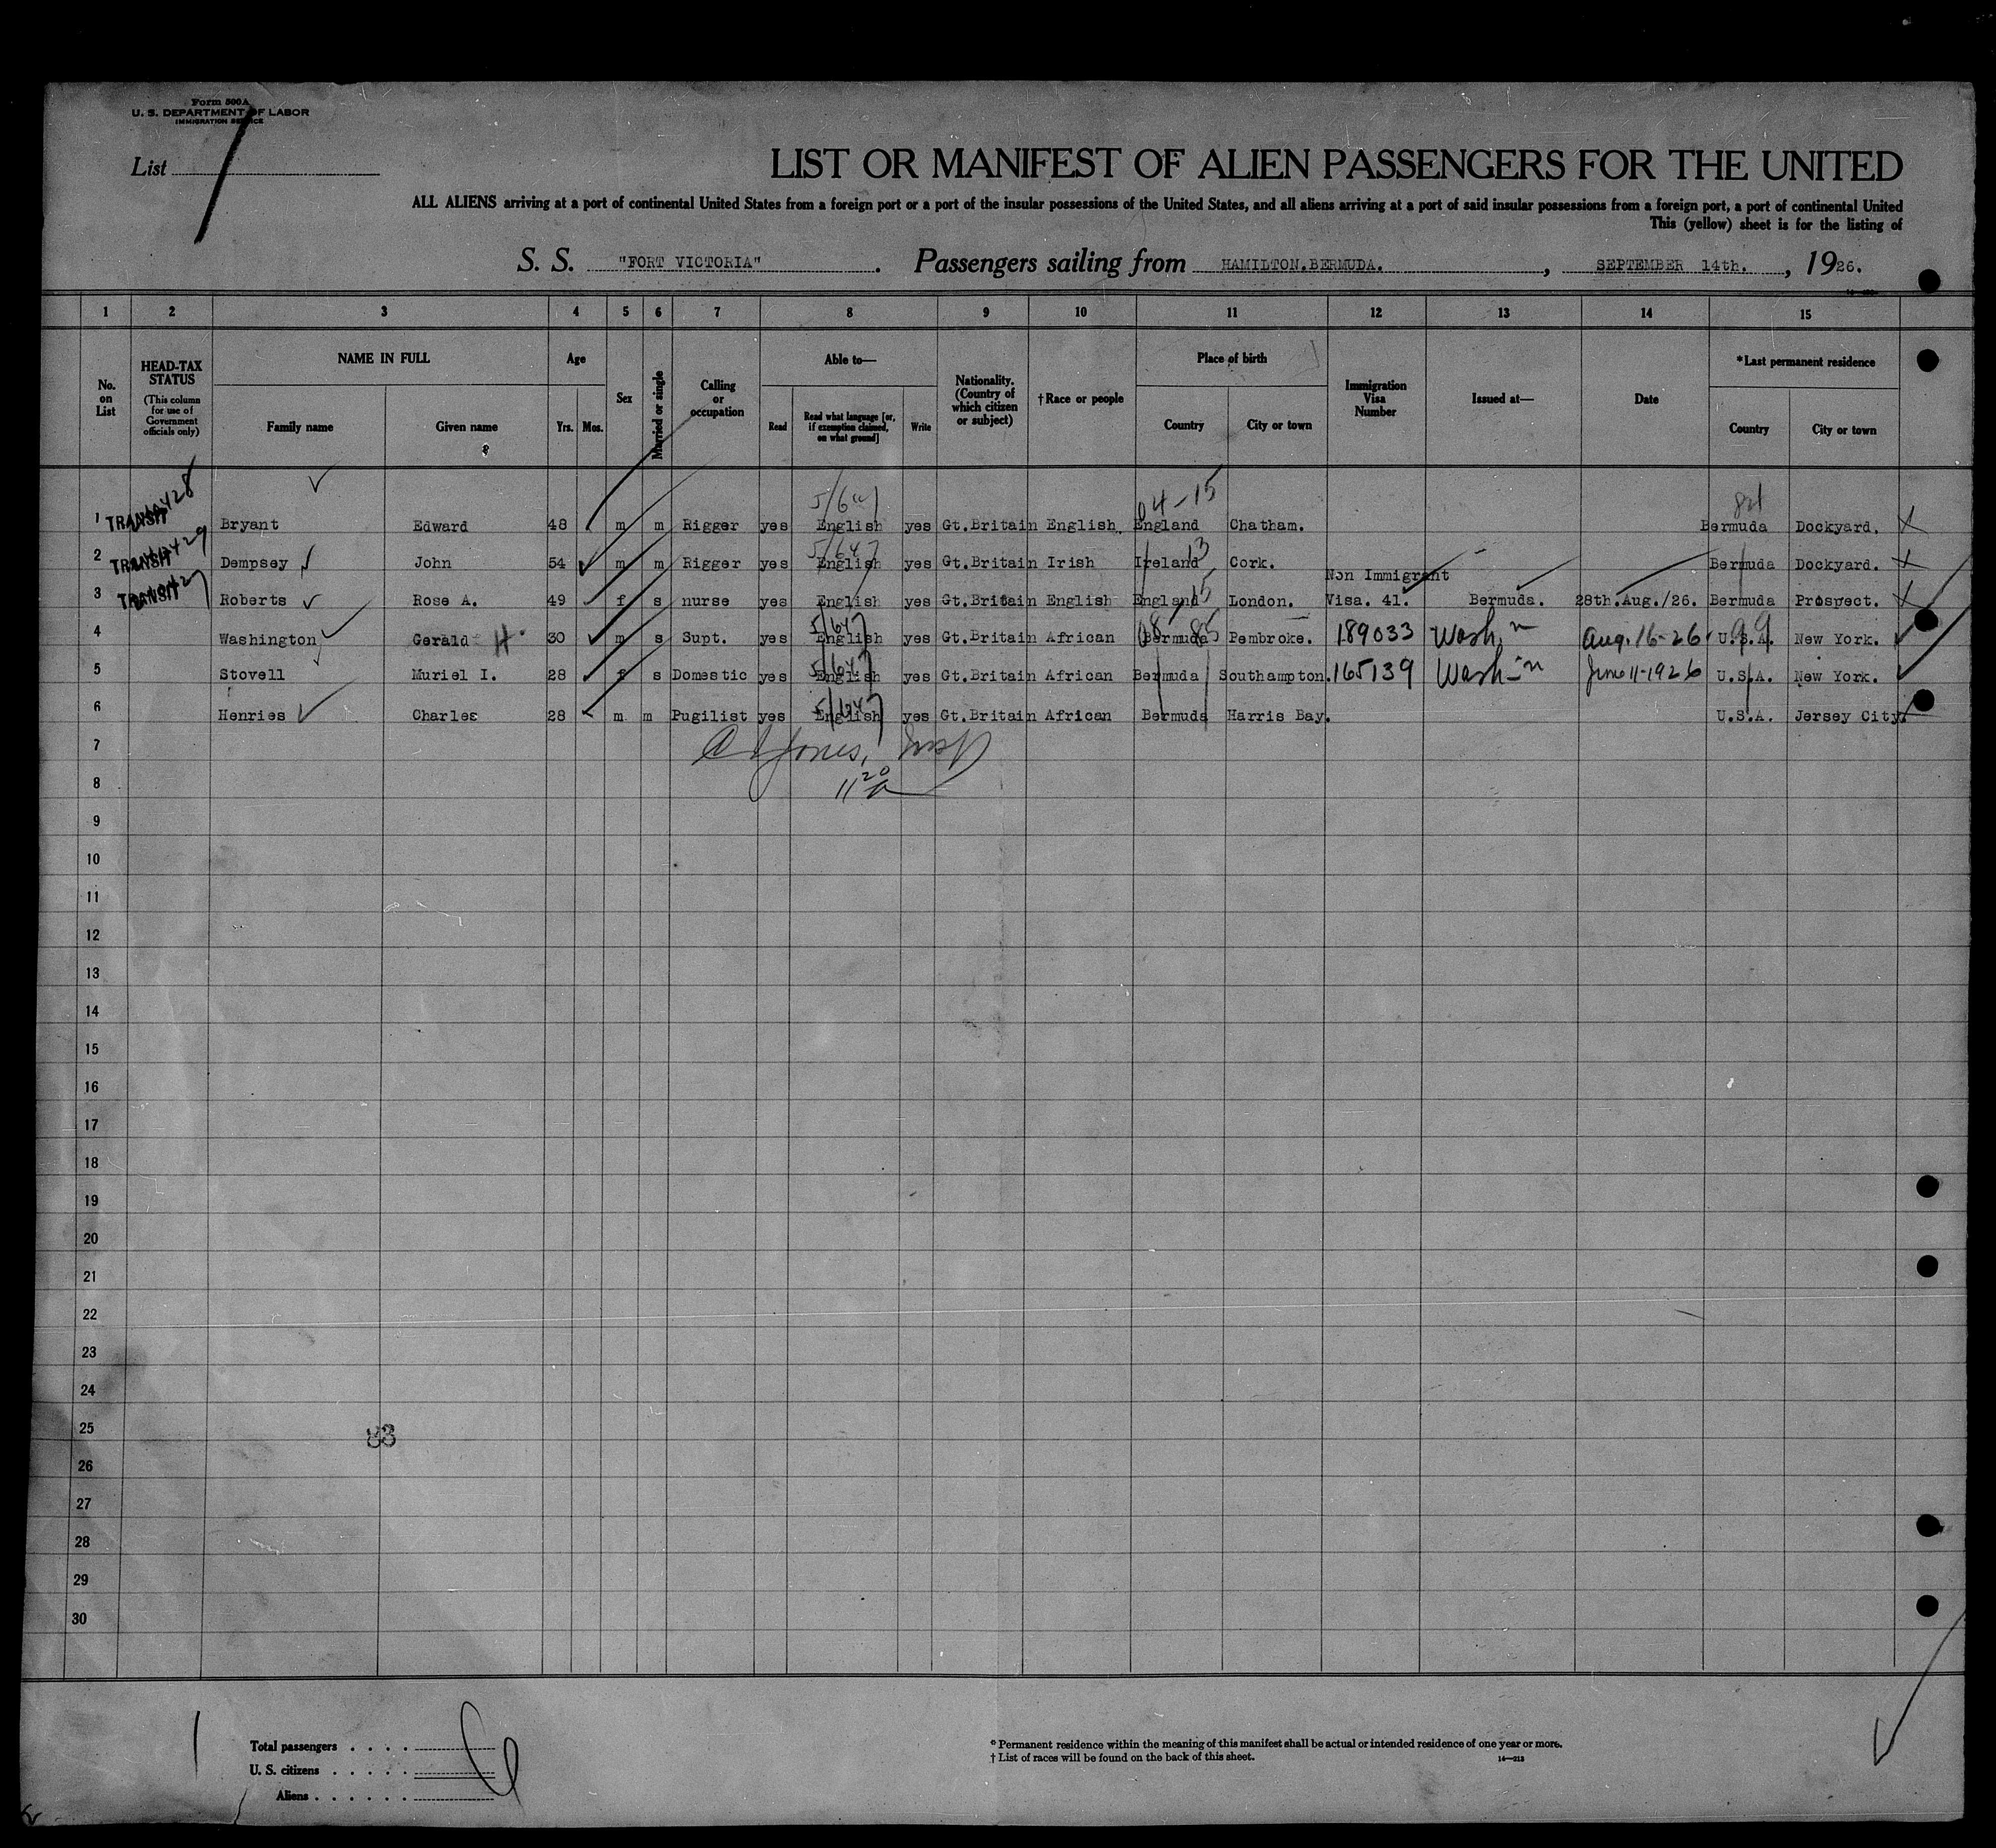 Form 500A
U. S. DEPARTMENT OF LABOR
IMMIGRATION SERVICE
List
LIST OR MANIFEST OF ALIEN PASSENGERS FOR THE UNITED
ALL ALIENS arriving at a port of continental United States from a foreign port or a port of the insular possessions of the United States, and all aliens arriving at a port of said insular possessions from a foreign port, a port of continental United
This (yellow) sheet is for the listing of
S. S. "FORT VICTORIA". Passengers sailing from HAMILTON.BERMUDA., SEPTEMBER 14th., 1926.
1 2 3 4 5 6 7 8 9 10 11 12 13 14 15
No. on List
HEAD-TAX STATUS (This column for use of Government officials only)
NAME IN FULL Family name Given name
Age Yrs. Mos.
Sex
Married or single
Calling or occupation
Able to— Read Read what language [or, if exemption claimed, on what ground] Write
Nationality. (Country of which citizen or subject)
†Race or people
Place of birth Country City or town
Immigration Visa Number
Issued at—
Date
*Last permanent residence Country City or town
5/647 04-15 84
1 TRANSIT Bryant Edward 48 m m Rigger yes English yes Gt.Britain English. England Chatham. Bermuda Dockyard. X
5/647 13
2 TRANSIT Dempsey John 54 m m Rigger yes English yes Gt.Britain Irish Ireland Cork. Bermuda Dockyard. X
Non Immigrant
15
3 TRANSIT Roberts Rose A. 49 f s nurse yes English yes Gt.Britain English England London. Visa. 41. Bermuda. 28th.Aug./26. Bermuda Prospect. X
5/647 08 85 99
4 Washington Gerald H. 30 m s Supt. yes English yes Gt.Britain African Bermuda Pembroke. 189033 Wash, n Aug. 16-26 U.S.A. New York.
5/647
5 Stovell Muriel I. 28 f s Domestic yes English yes Gt.Britain African Bermuda Southampton. 165139 Wash-n June 11-1926 U.S.A. New York.
5/647
6 Henries Charles 28 m m Pugilist yes English yes Gt.Britain African Bermuda Harris Bay. U.S.A. Jersey City.
7 Jones, Insp
8 11 20 a
9
10
11
12
13
14
15
16
17
18
19
20
21
22
23
24
25 83
26
27
28
29
30
Total passengers . . . .
U. S. citizens . . . . .
Aliens . . . . . .
* Permanent residence within the meaning of this manifest shall be actual or intended residence of one year or more.
† List of races will be found on the back of this sheet. 14—213